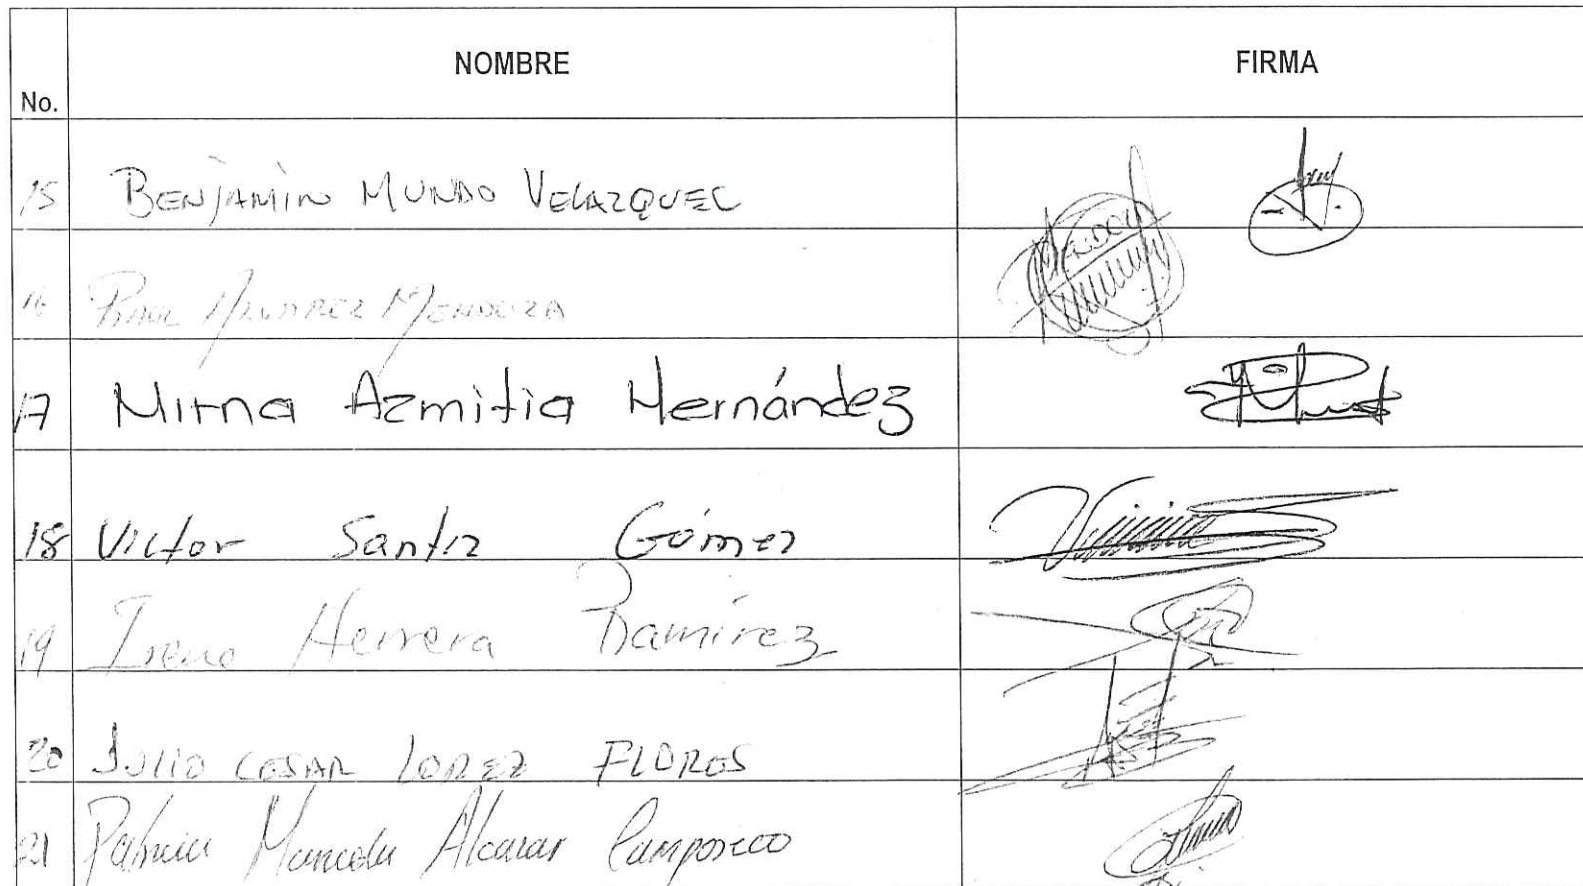 NOMBRE FIRMA
No.
15 BENJAMIN MUNDO VELAZQUEZ
16 RAUL ALVAREZ MENDOZA
17 Mirna Azmitia Hernández
18 Victor Santiz Gómez
19 Irene Herrera Ramírez
20 JULIO CESAR LOPEZ FLORES
21 Patricia Marcela Alcazar Camposeco